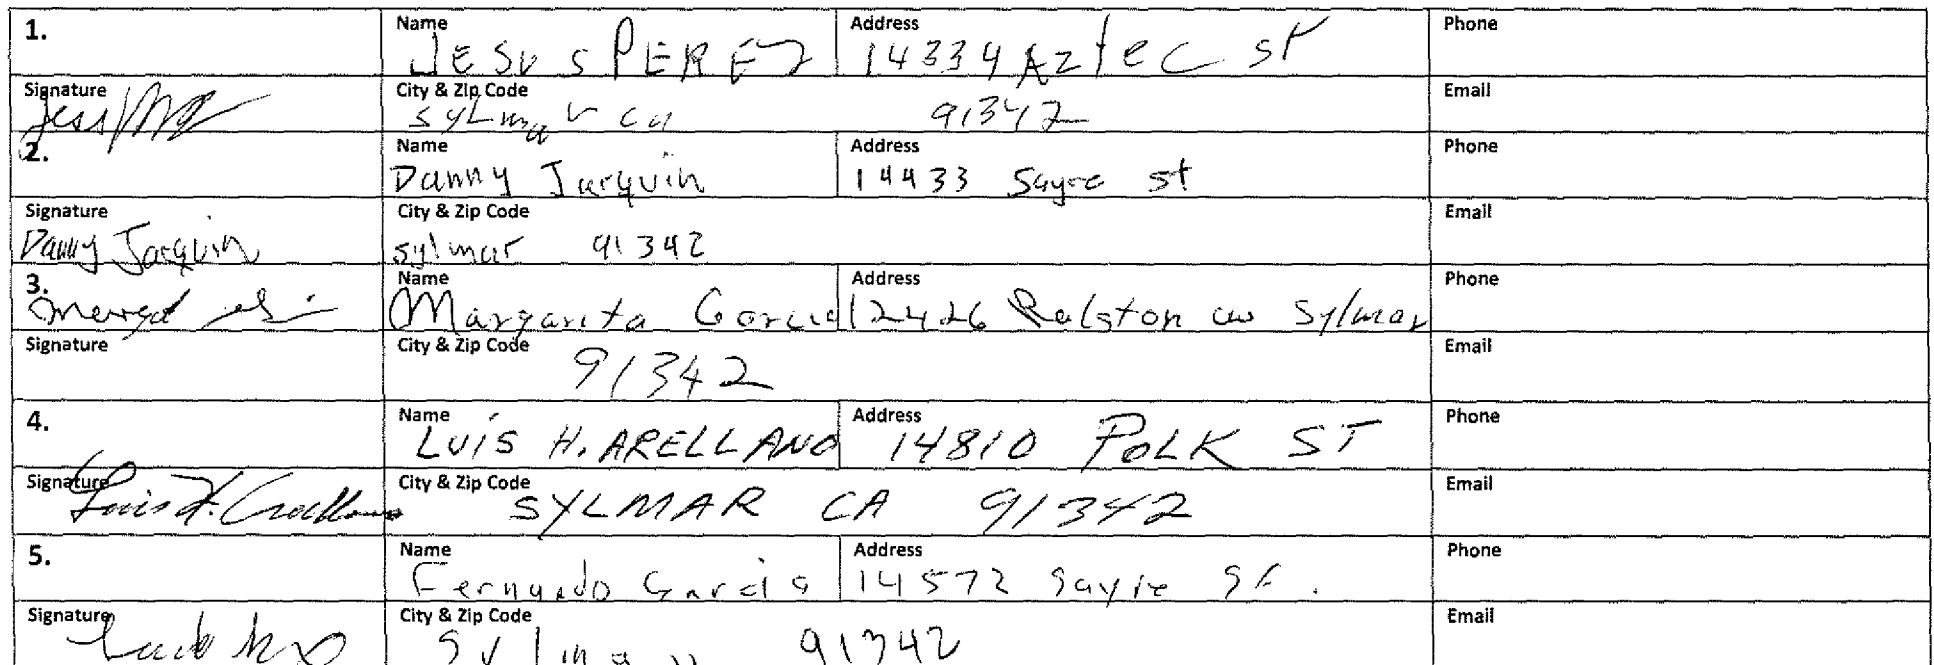 1. Name JESUS PEREZ Address 14334 Aztec St Phone
Signature City & Zip Code Sylmar ca 91342 Email
2. Name Danny Jarquin Address 14433 Sayre st Phone
Signature Danny Jarquin City & Zip Code sylmar 91342 Email
3. Name Margarita Garcia Address 12426 Ralston Sylmar Phone
Signature City & Zip Code 91342 Email
4. Name LUIS H. ARELLANO Address 14810 POLK ST Phone
Signature Luis H. Arellano City & Zip Code SYLMAR CA 91342 Email
5. Name Fernando Garcia Address 14572 Sayre St. Phone
Signature City & Zip Code Sylmar 91342 Email